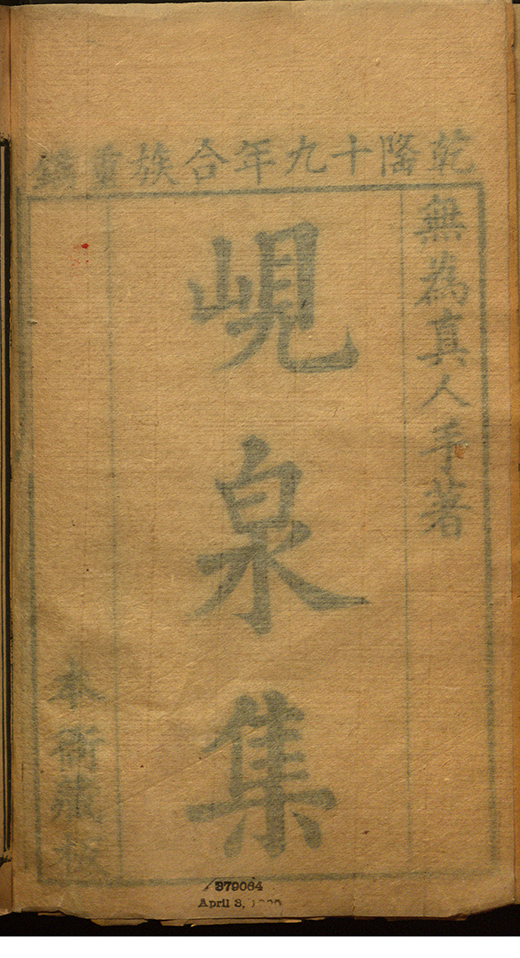 乾隆十九年合族重鐫
無為真人手著
峴泉集
本衙藏板
379064
April 3,